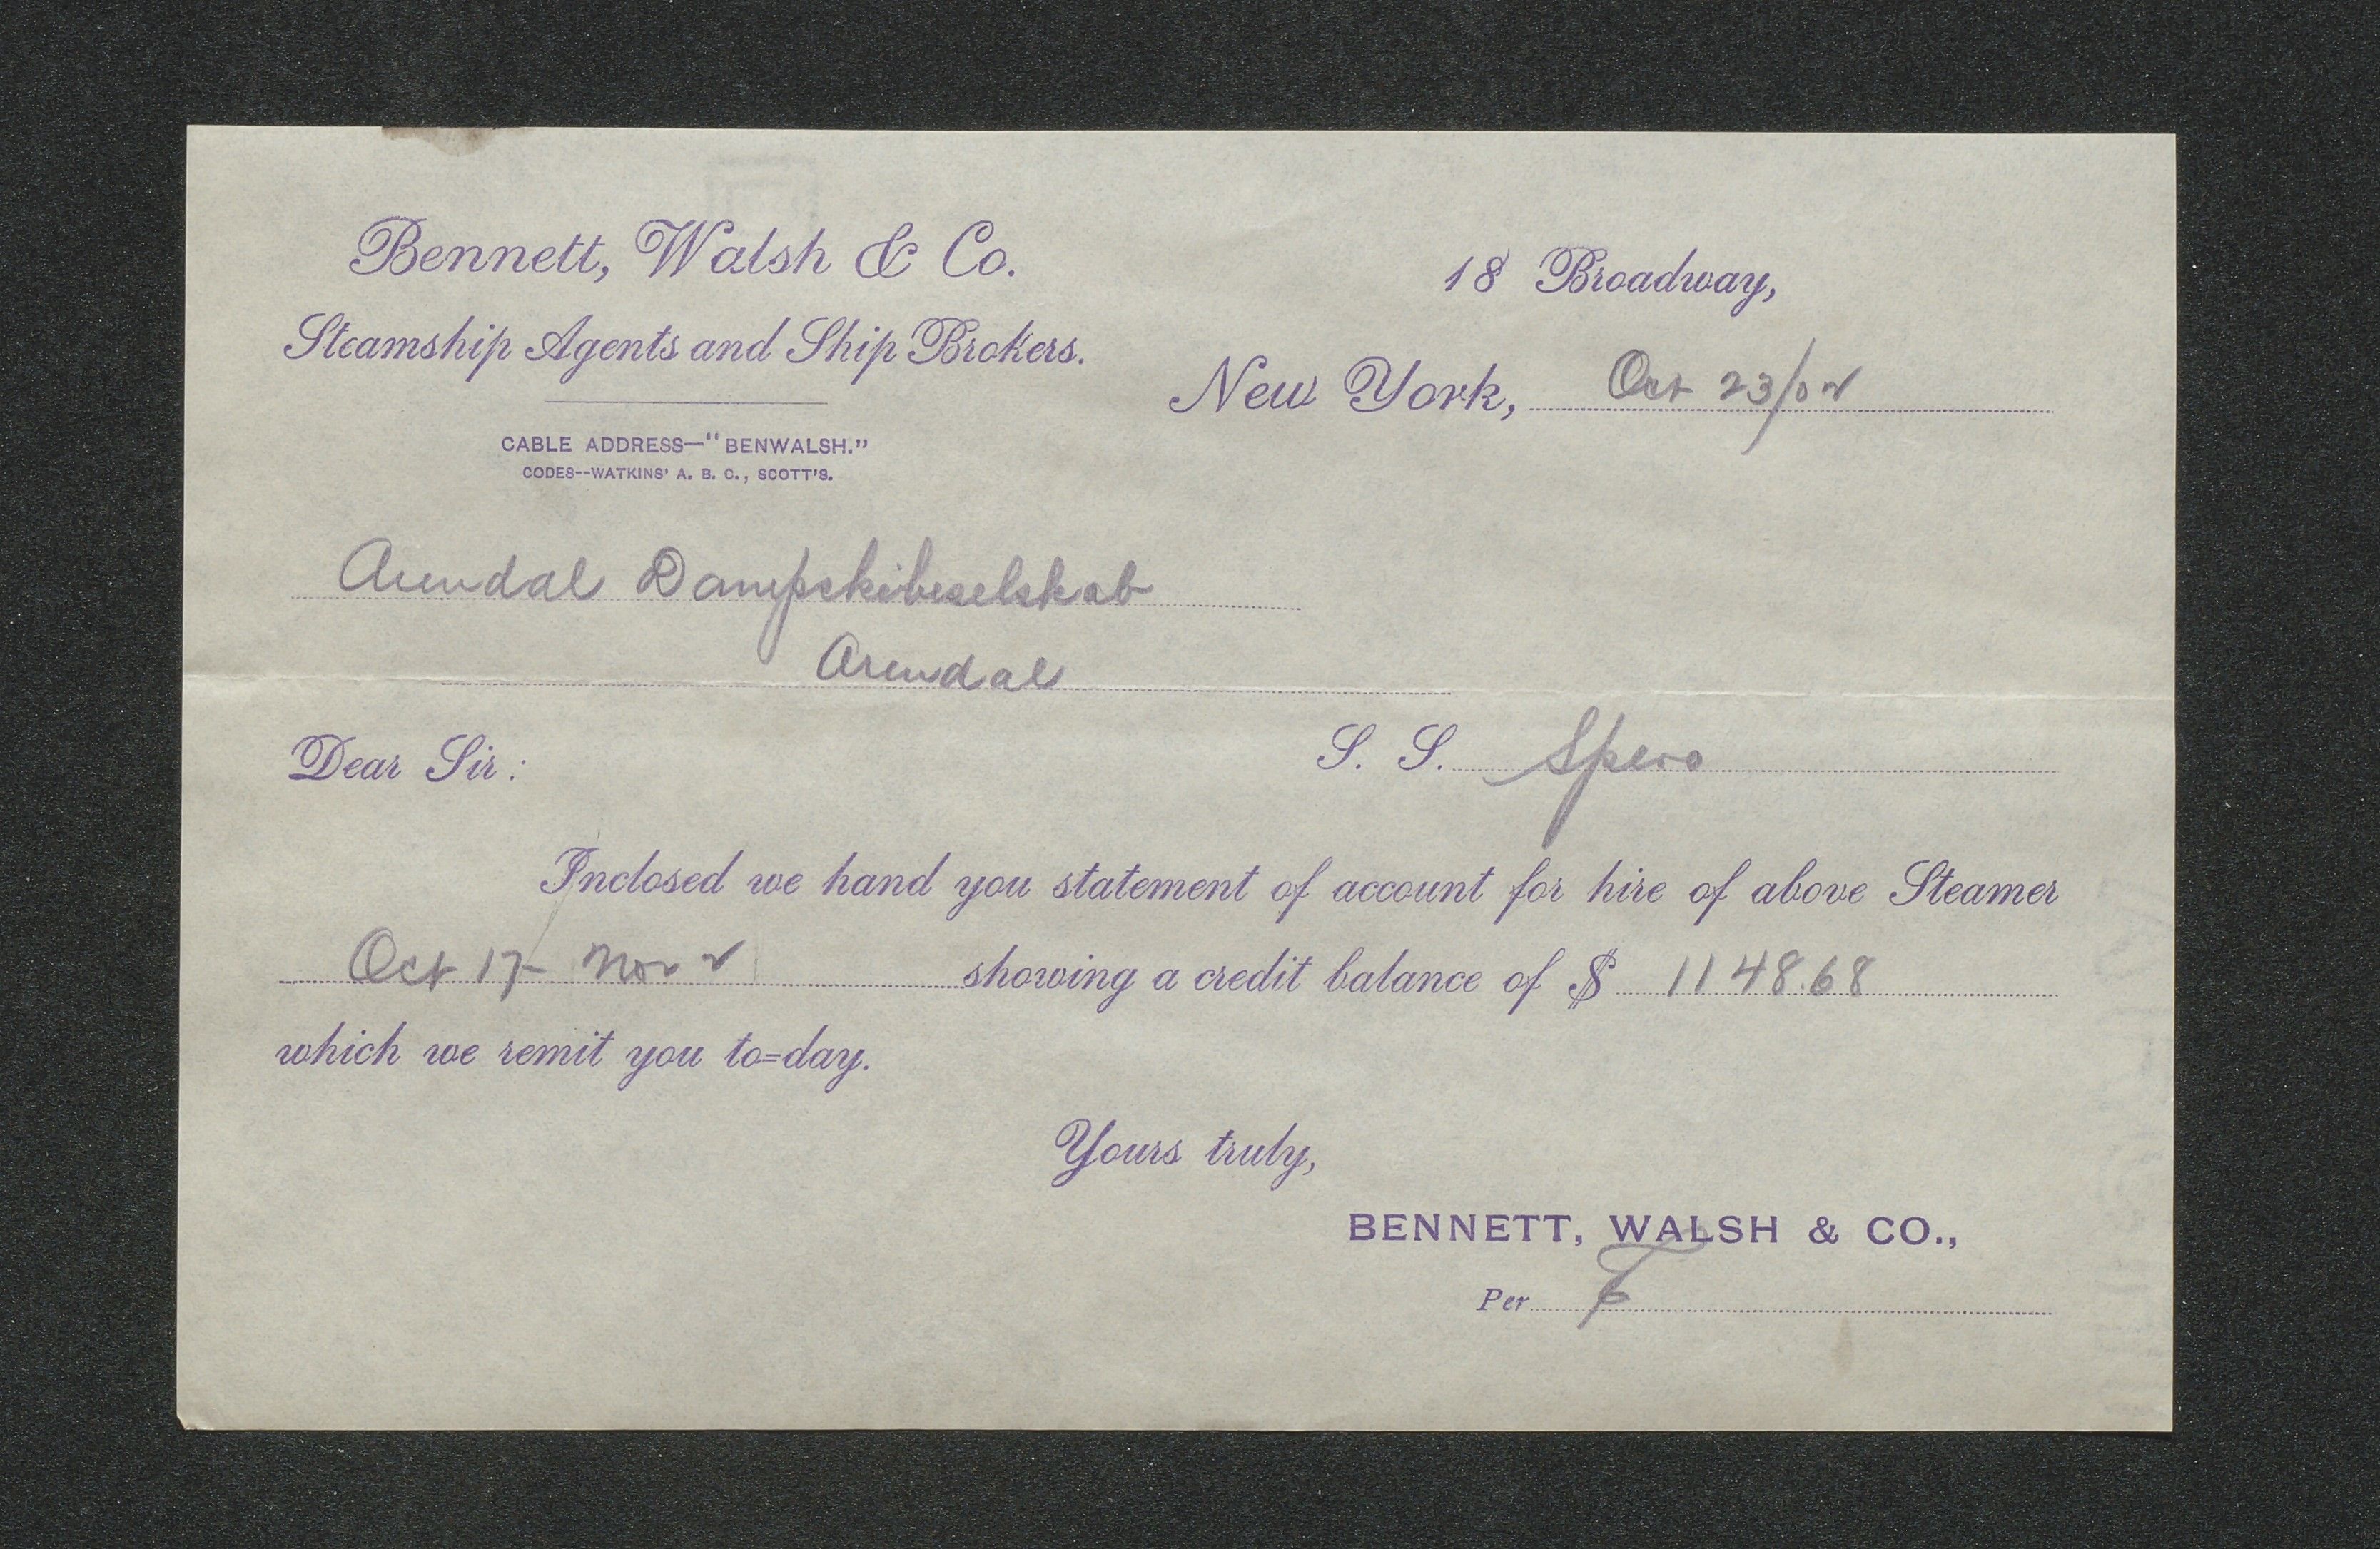 Bennett, Walsh & Co.
Steamship Agents and Ship Brokers.
CABLE ADDRESS—"BENWALSH."
CODES--WATKINS' A. B. C., SCOTT'S.
18 Broadway,
New York, Oct 23/02
Arendal Dampskibsselskab
Arendal
Dear Sir:
S. S. Spero
Inclosed we hand you statement of account for hire of above Steamer
Oct 17 - Nov 2 showing a credit balance of $ 1148.68
which we remit you to=day.
Yours truly,
BENNETT, WALSH & CO.,
Per